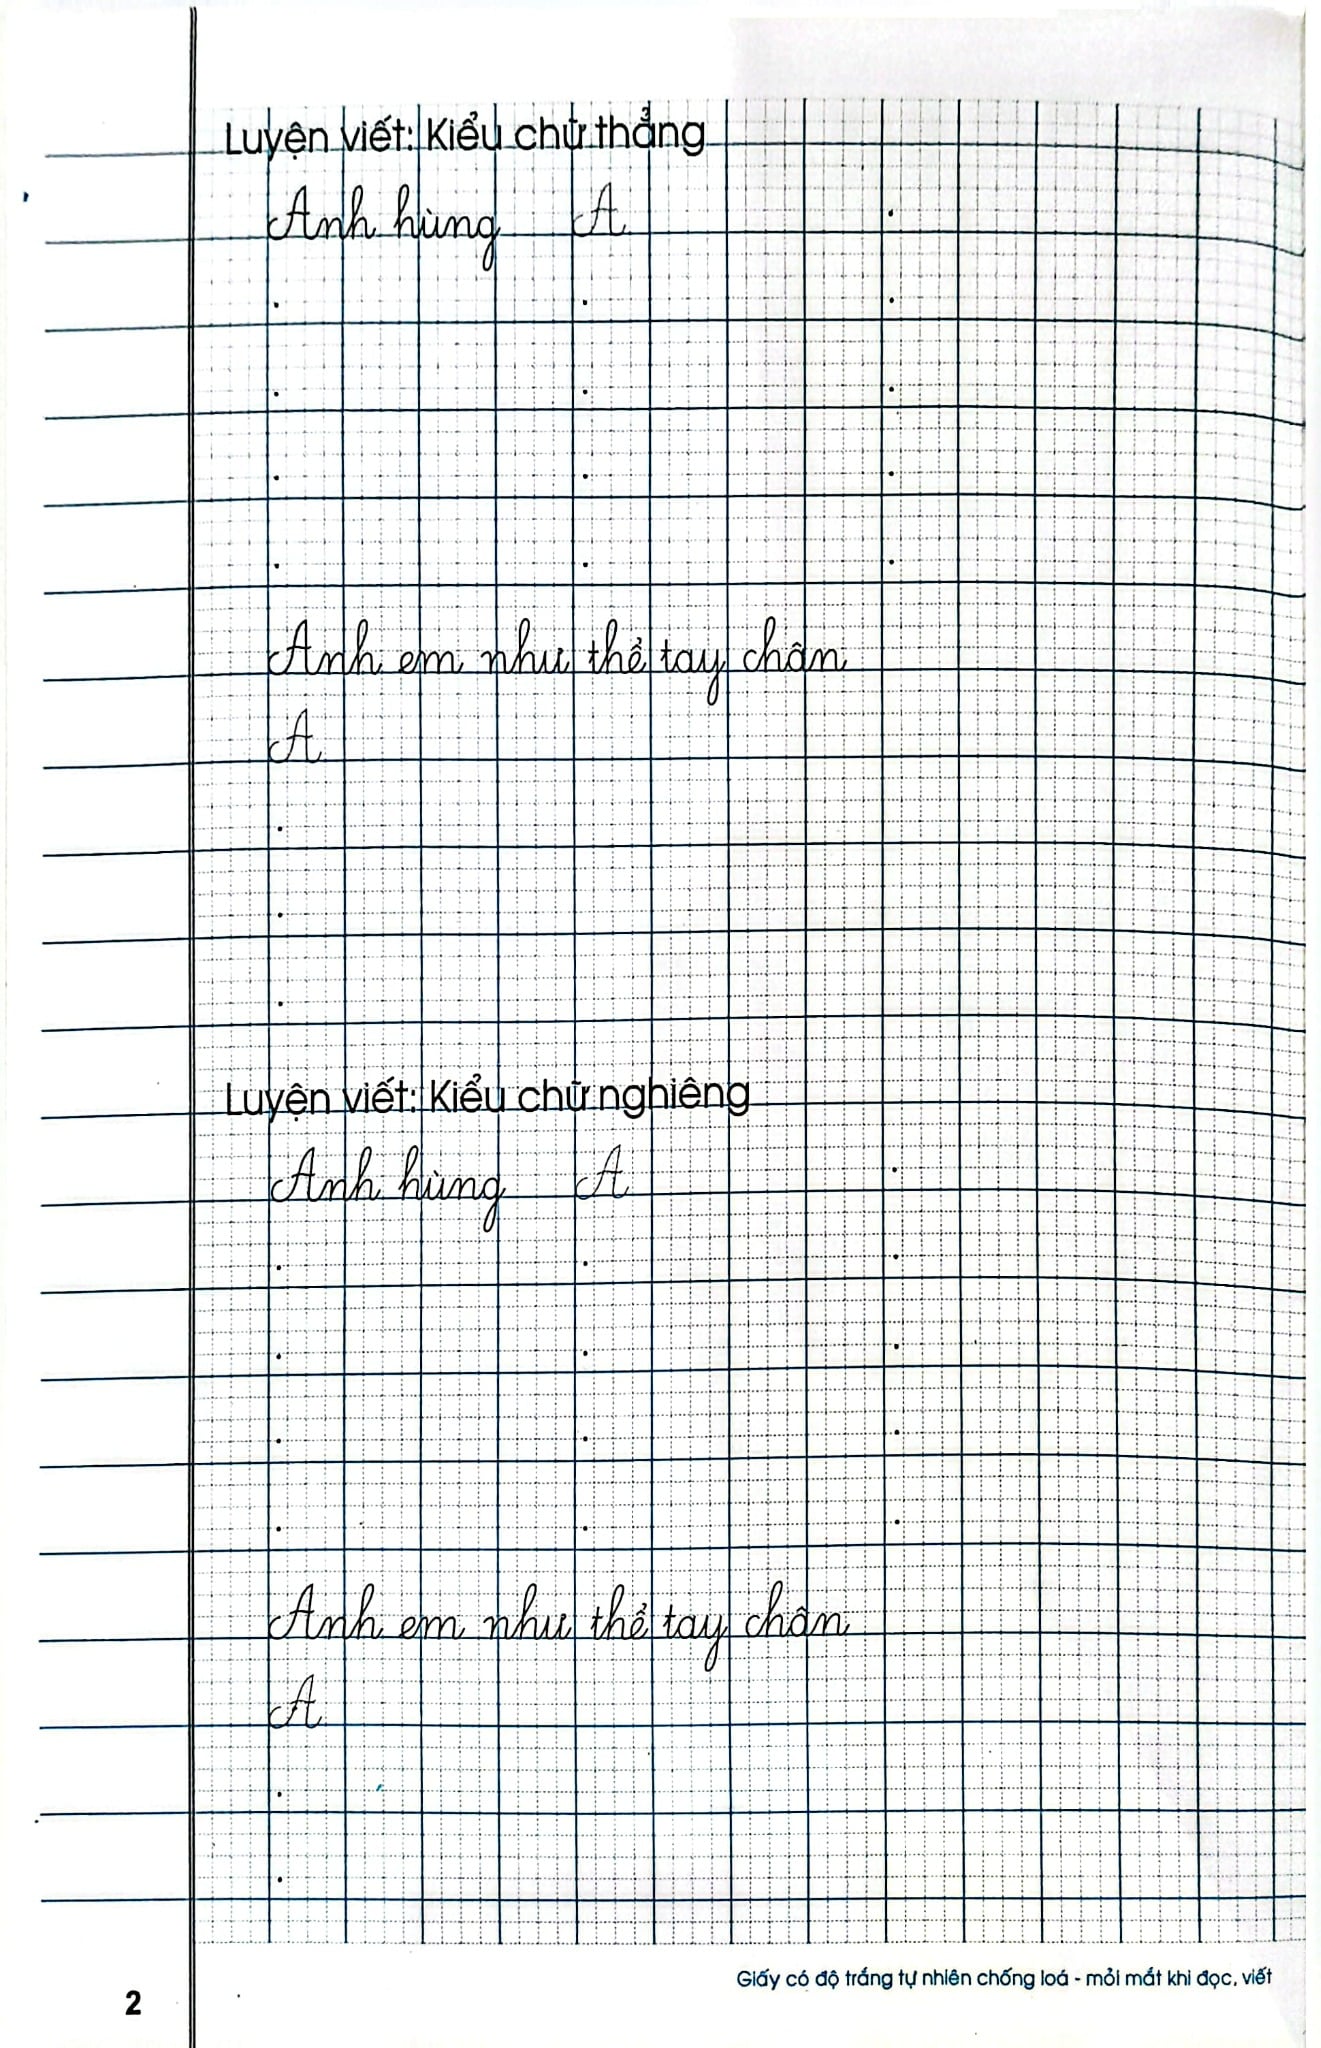 Luyện viết: Kiểu chữ thẳng
Anh hùng A
Anh em như thể tay chân
A
Luyện viết: Kiểu chữ nghiêng
Anh hùng A
Anh em như thể tay chân
A
Giấy có độ trắng tự nhiên chống loá - mỏi mắt khi đọc, viết
2